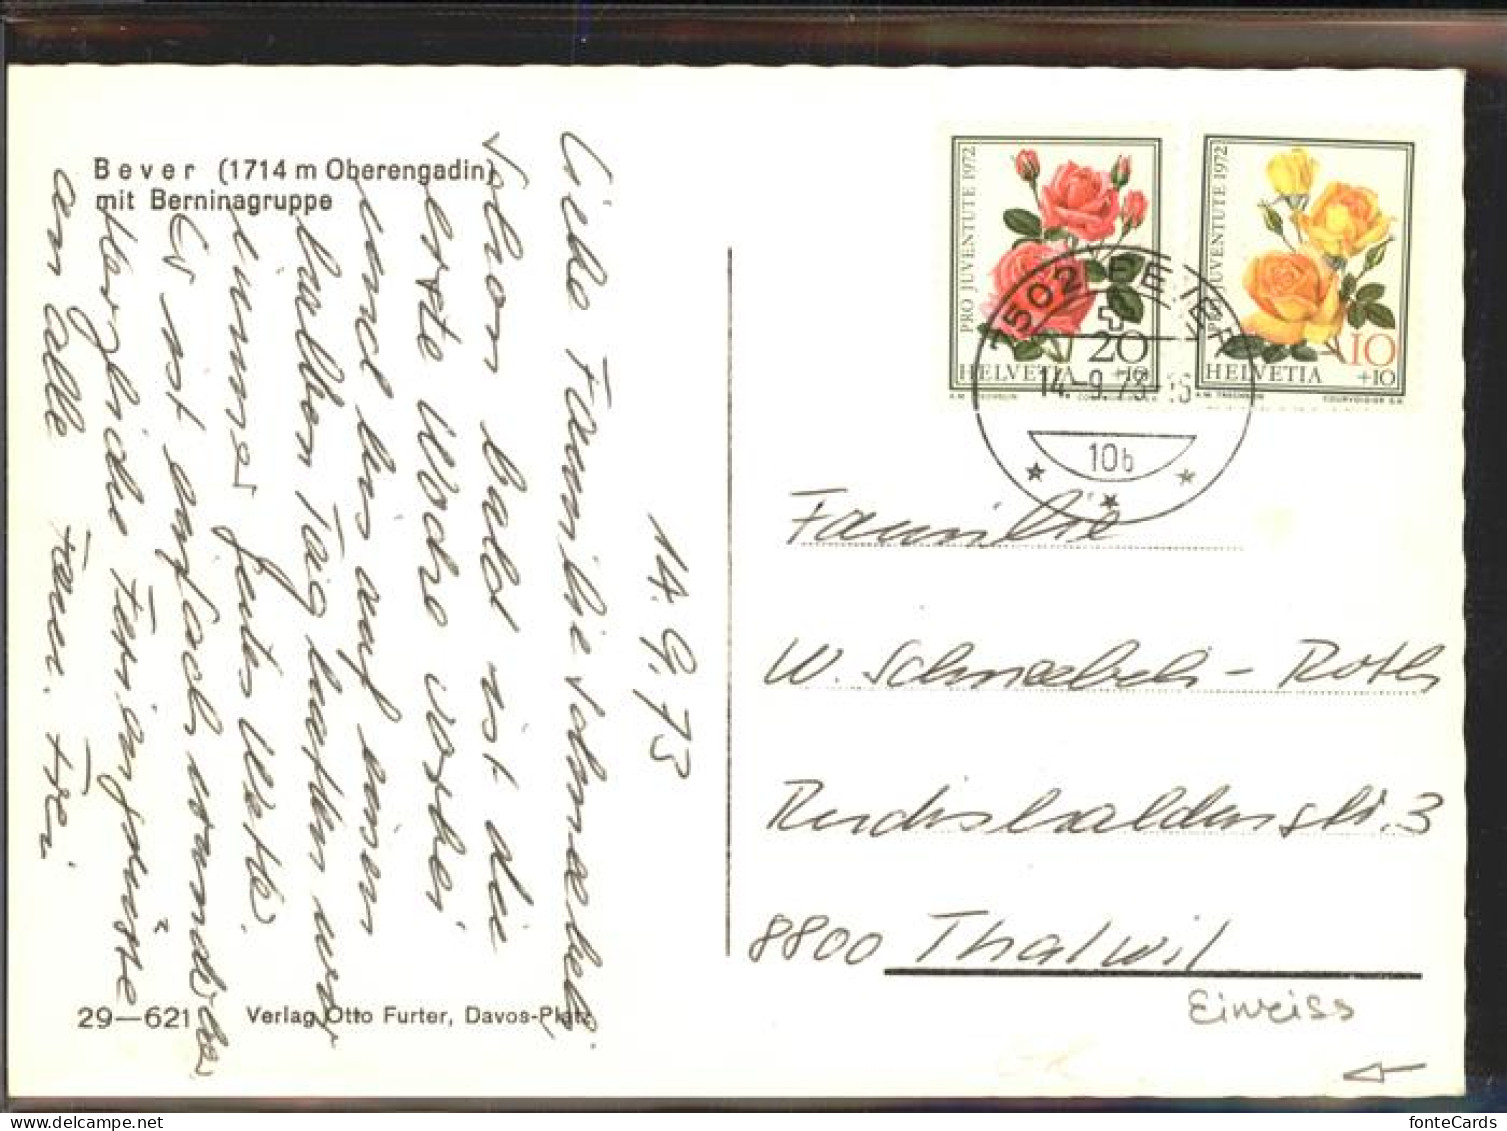 Bever (1714 m Oberengadin)
mit Berninagruppe
14.9.73
Liebe Familie Schnaebeli
Schon bald ist die
erste Woche vorbei
und bis auf einen
halben Tag hatten wir
immer
Es ist einfach wunderbar
Herzliche Feriengrüsse
an alle Fam. Frei
29—621
Verlag Otto Furter, Davos-Platz
PRO JUVENTUTE 1972
20
+10
HELVETIA
PRO JUVENTUTE 1972
10
+10
HELVETIA
COURVOISIER S.A.
7502 BEVER
14-9.73-16
10b
Familie
W. Schnaebeli-Roth
3
8800 Thalwil
Einreiss
fonteCards